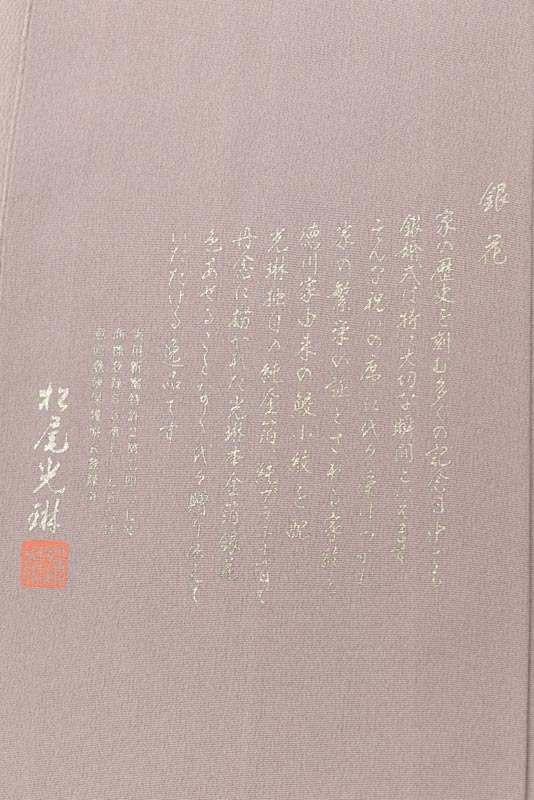 銀花
家の歴史を刻む多くの記念日中でも
銀婚式は特に大切な瞬間といえます
そんな祝いの席に代々受けつがれ
家の繁栄の証とされる家紋と
徳川家由来の鮫小紋を配し
光琳独自の純金箔、純プラチナ箔で
丹念に描かれた光琳本金箔銀花
色あせることなく、代々贈り伝えて
いただける逸品です
実用新案特許
商標登録
意匠登録
松尾光琳